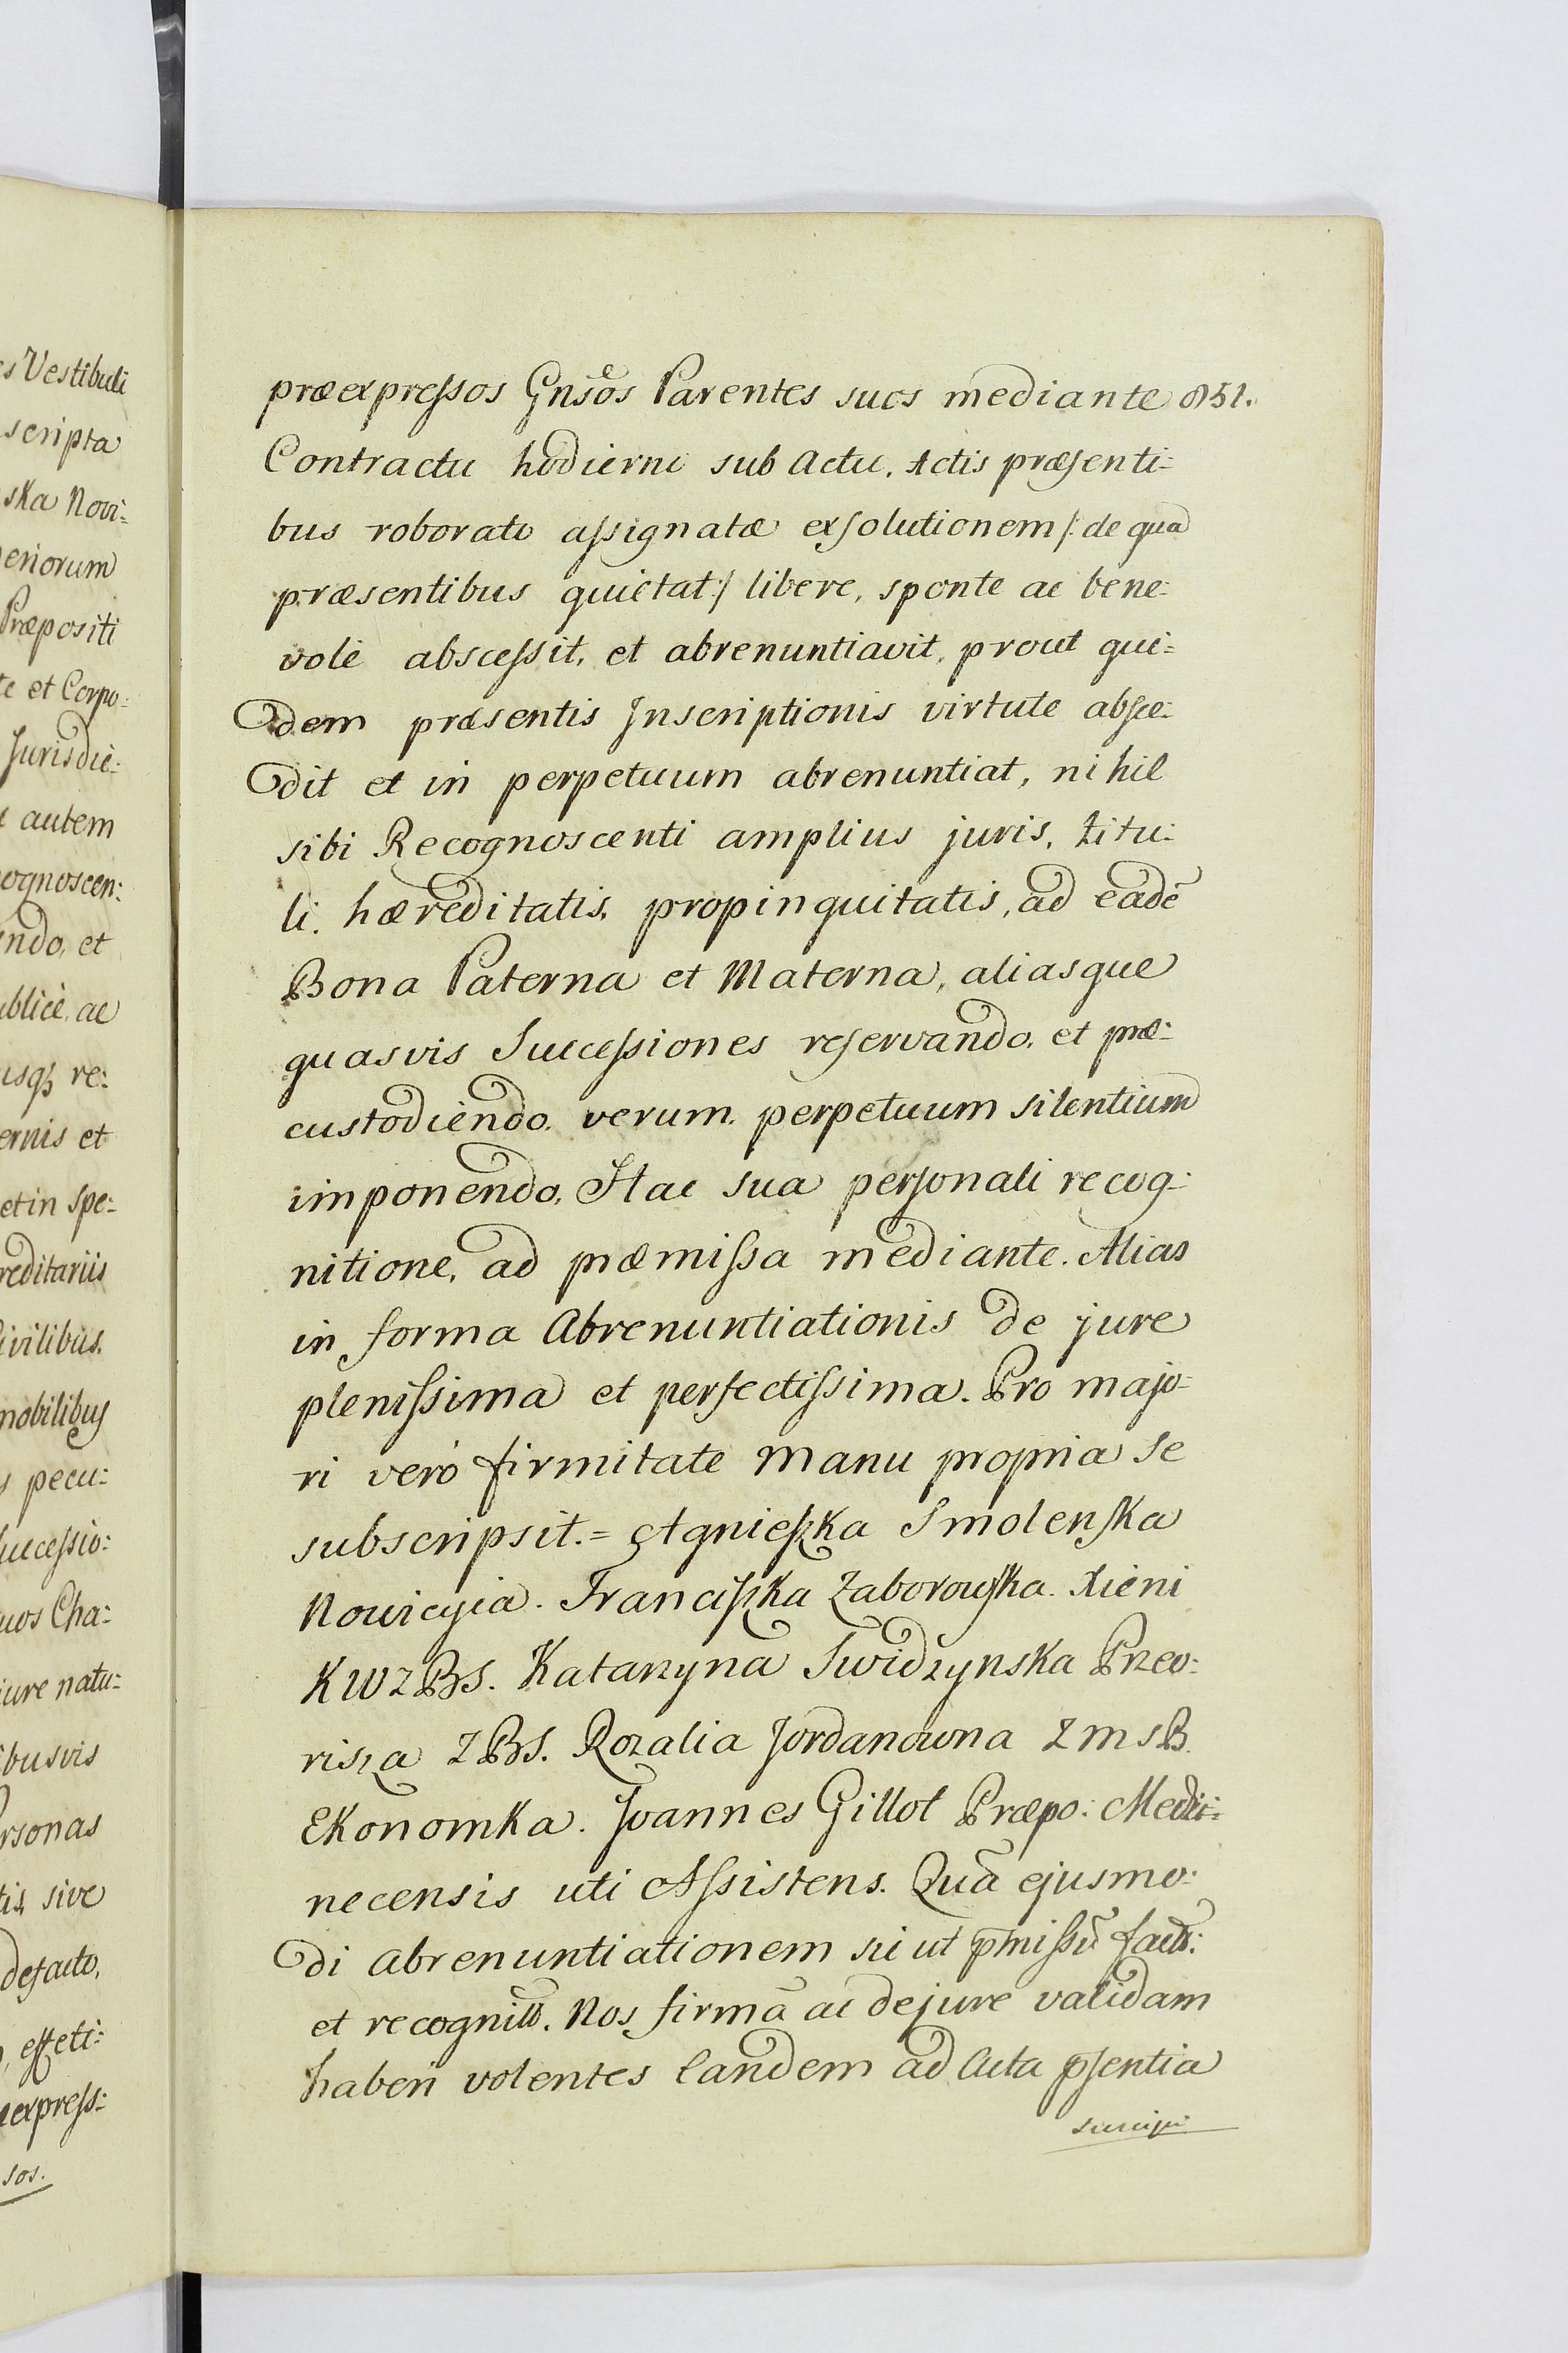 s Vestibuli
scripta
ska Novi=
eriorum
Præpositi
te et Corpo=
Jurisdic=
autem
ognoscen:
endo, et
ublicè, ac
usq, re:
ernis et
et in spe=
reditariis
ivilibus.
mobilibus
pecu=
Successio:
uos Cha:
jure natu=
ibusvis
ersonas
sive
defacto,
effeti:
express:
sos.
præexpreſsos Gnsos Parentes suos mediante 851.
Contractu hodierno sub Actu, Actis præsenti=
bus roborato aſsignatæ exsolutionem /: de qua
præsentibus quietat :/ libere, sponte ac bene=
vole absceſsit, et abrenuntiavit, prout qui=
dem præsentis Inscriptionis virtute absce=
dit et in perpetuum abrenuntiat, nihil
sibi Recognoscenti amplius juris, titu=
li, hæreditatis, propinquitatis, ad eadē
Bona Paterna et Materna, aliasque
quasvis Succeſsiones reservando, et præ=
custodiendo, verum perpetuum silentium
imponendo, Hac sua personali recog=
nitione, ad præmiſsa mediante. Alias
in forma Abrenuntiationis de jure
pleniſsima et perfectiſsima. Pro majo=
ri verò firmitate manu propria se
subscripsit. = Agnieszka Smolenska
Nowicyia. Franciszka Zaborowska. Xieni
KWZBS. Katarzyna Swidzynska Przeo=
risza ZBS. Rozalia Jordanowna ZmSB.
Ekonomka. Joannes Gillot Præpo: Medi=
necensis uti Aſsistens. Quā ejusmo=
di abrenuntiationem sic ut p̄miſsū
et recognit. Nos firmā ac de jure validam
haberi volentes Eandem ad Acta p̄sentia